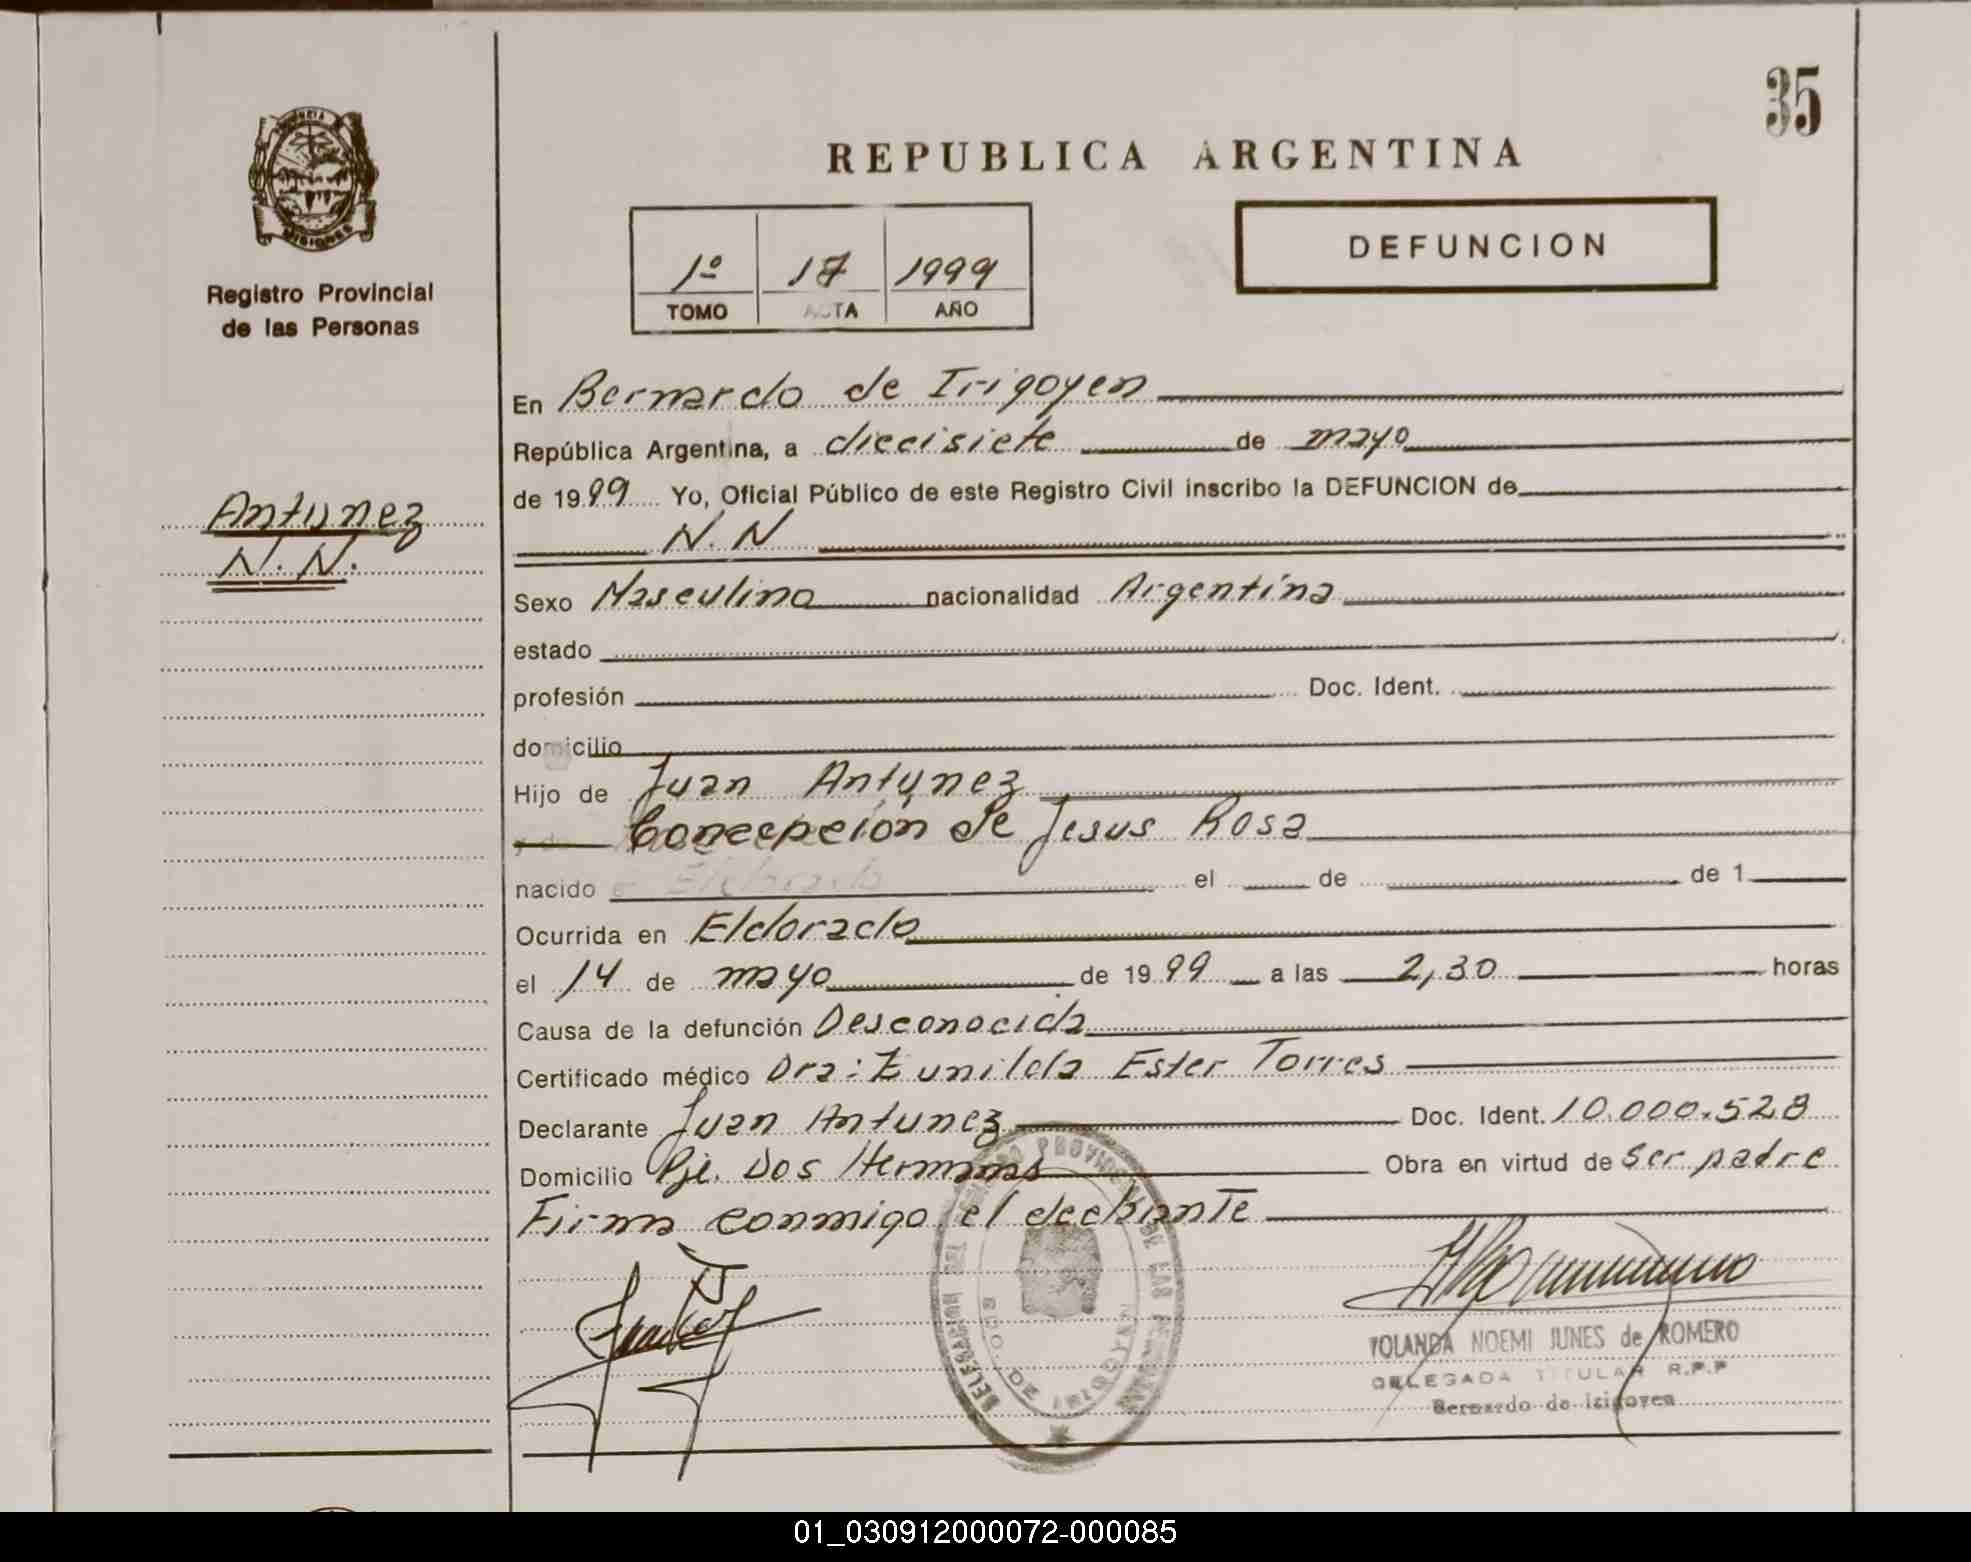 35
REPUBLICA ARGENTINA
DEFUNCION
1º 17 1999
TOMO ACTA AÑO
MISIONES
Registro Provincial
de las Personas
Antunez
N. N.
En Bernardo de Irigoyen
República Argentina, a diecisiete de mayo
de 1999 Yo, Oficial Público de este Registro Civil inscribo la DEFUNCION de
N. N
Sexo Masculino nacionalidad Argentina
estado
profesión Doc. Ident.
domicilio
Hijo de Juan Antunez
y de Concepcion de Jesus Rosa
nacido el de de 1
Ocurrida en Eldorado
el 14 de mayo de 1999 a las 2,30 horas
Causa de la defunción Desconocida
Certificado médico Dra: Eunilda Ester Torres
Declarante Juan Antunez Doc. Ident. 10.000.528
Domicilio Pje. Dos Hermanas Obra en virtud de ser padre
Firma conmigo el declarante
YOLANDA NOEMI JUNES de ROMERO
DELEGADA TITULAR R.P.P
Bernardo de Irigoyen
BDO. DE IRIGOYEN
01_030912000072-000085